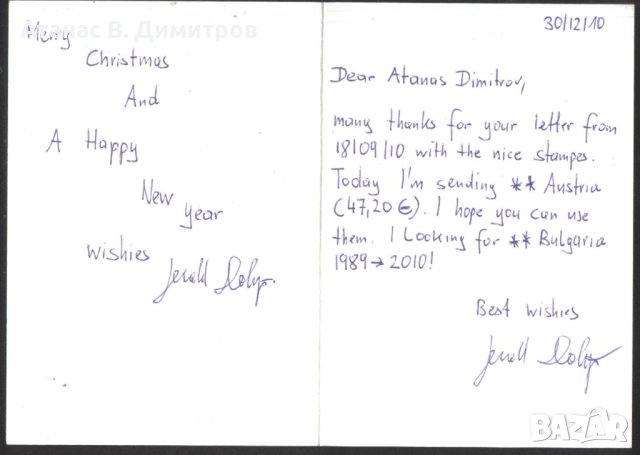 Атанас В. Димитров
Merry
Christmas
And
A Happy
New
year
wishies
30/12/10
Dear Atanas Dimitrov,
many thanks for your letter from
18/09/10 with the nice stampes.
Today I'm sending ** Austria
(47,20 €). I hope you can use
them. I Looking for ** Bulgaria
1989→2010!
Best wishies
BAZAR